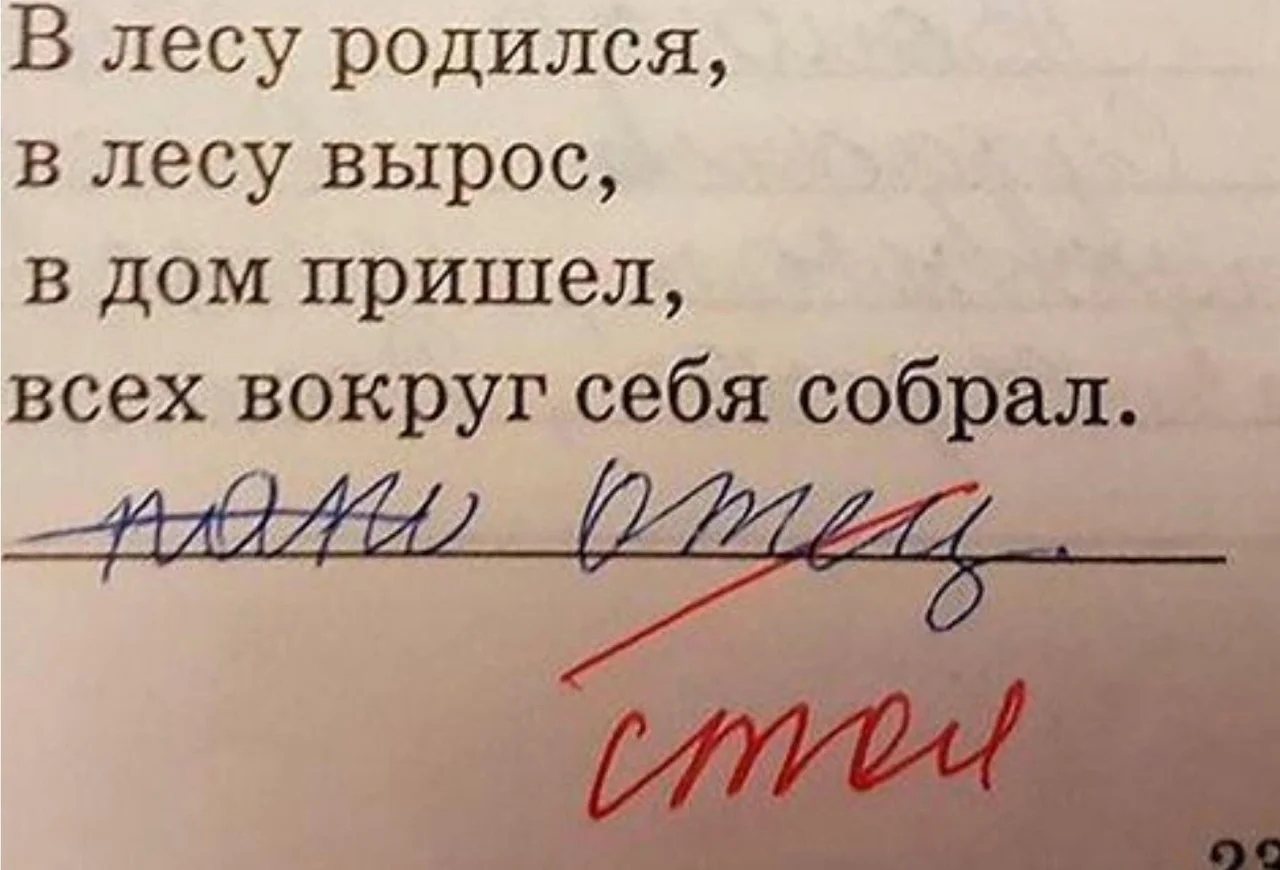 В лесу родился,
в лесу вырос,
в дом пришел,
всех вокруг себя собрал.
отец.
стол